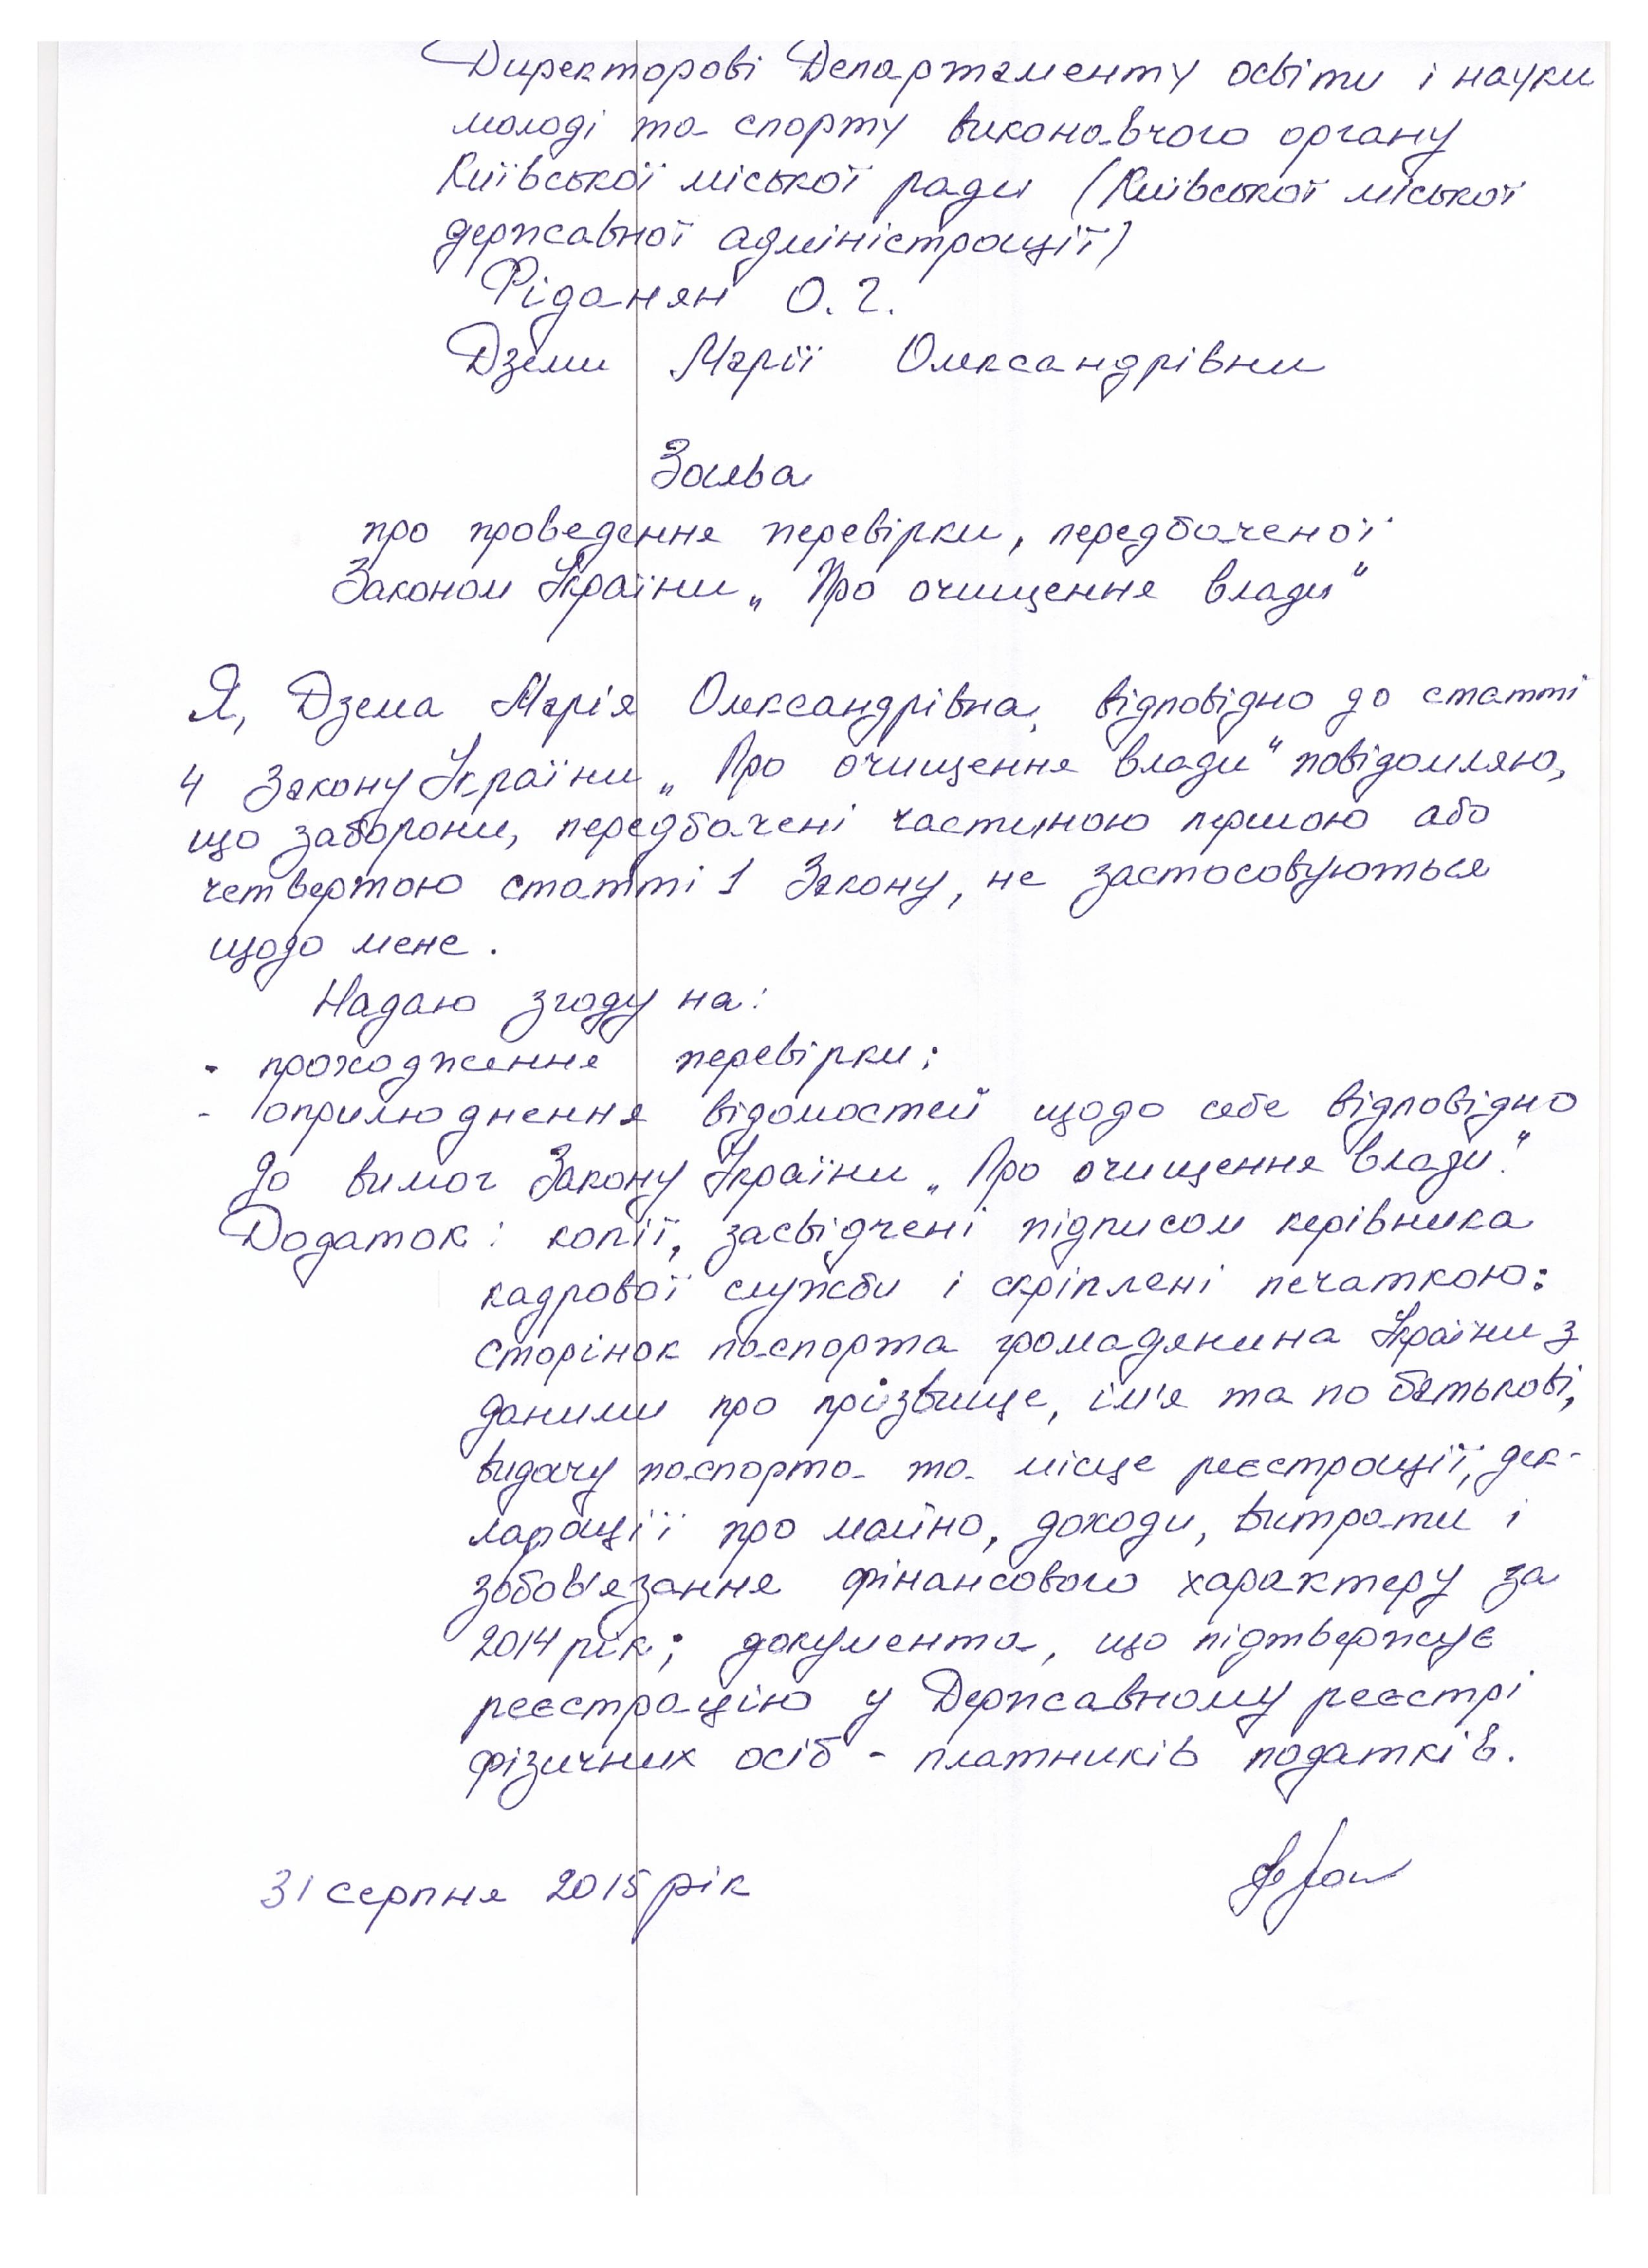 Директорові Департаменту освіти і науки
молоді та спорту виконавчого органу
Київської міської ради (Київської міської
державної адміністрації)
Фіданян О.Г.
Дземи Марії Олександрівни
Заява
про проведення перевірки, передбаченої
Законом України „Про очищення влади"
Я, Дзема Марія Олександрівна, відповідно до статті
4 Закону України „Про очищення влади" повідомляю,
що заборони, передбачені частиною першою або
четвертою статті 1 Закону, не застосовуються
щодо мене.
Надаю згоду на:
- проходження перевірки;
- оприлюднення відомостей щодо себе відповідно
до вимог Закону України „Про очищення влади".
Додаток: копії, засвідчені підписом керівника
кадрової служби і скріплені печаткою:
сторінок паспорта громадянина України з
даними про прізвище, ім'я та по батькові,
видачу паспорта та місце реєстрації, дек-
лерації про майно, доходи, витрати і
зобов'язання фінансового характеру за
2014 рік; документа, що підтвержує
реєстрацію у Державному реєстрі
фізичних осіб - платників податків.
31 серпня 2015 рік